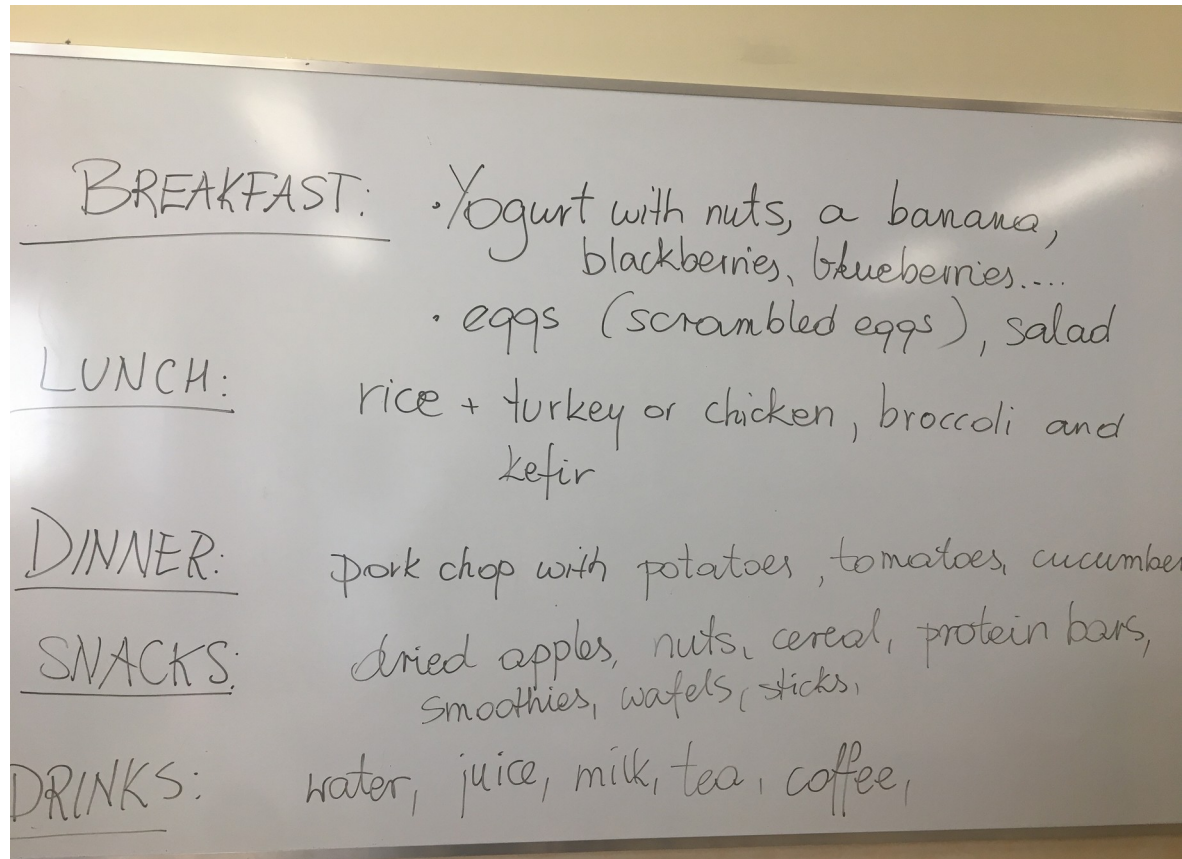 BREAKFAST: · Yogurt with nuts, a banana,
blackberries, blueberries....
· eggs (scrambled eggs), salad
LUNCH: rice + turkey or chicken, broccoli and
kefir
DINNER: pork chop with potatoes, tomatoes, cucumber
SNACKS: dried apples, nuts, cereal, protein bars,
smoothies, wafels, sticks,
DRINKS: water, juice, milk, tea, coffee,